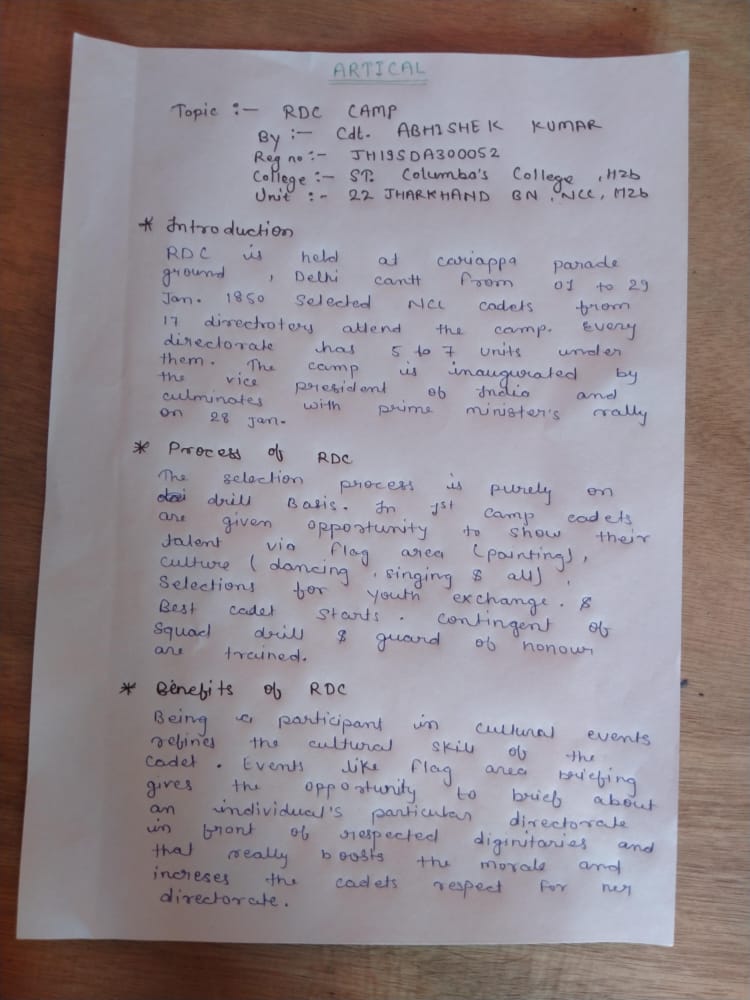 ARTICAL
Topic :- RDC CAMP
By :- Cdt. ABHISHEK KUMAR
Reg no :- JH19SDA300052
College :- ST. Columba's College, Hzb
Unit :- 22 JHARKHAND BN, NCC, Hzb
* Introduction
RDC is held at cariappa parade
ground, Delhi cantt from 01 to 29
Jan. 1850 selected NCC cadets from
17 directroters attend the camp. Every
directorate has 5 to 7 units under
them. The camp is inaugurated by
the vice president of India and
culminates with prime minister's rally
on 28 Jan.
* Process of RDC
The selection process is purely on
drill Basis. In 1st camp cadets
are given opportunity to show their
talent via flag area (painting),
culture (dancing, singing & all),
Selections for youth exchange. &
Best cadet starts. contingent of
squad drill & guard of honour
are trained.
* Benefits of RDC
Being a participant in cultural events
refines the cultural skill of the
cadet. Events like flag area briefing
gives the opportunity to brief about
an individual's particular directorate
in front of respected diginitaries and
that really boosts the morale and
increses the cadets respect for her
directorate.